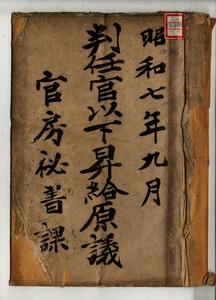 昭和七年九月
判任官以下昇給原議
官房祕書課